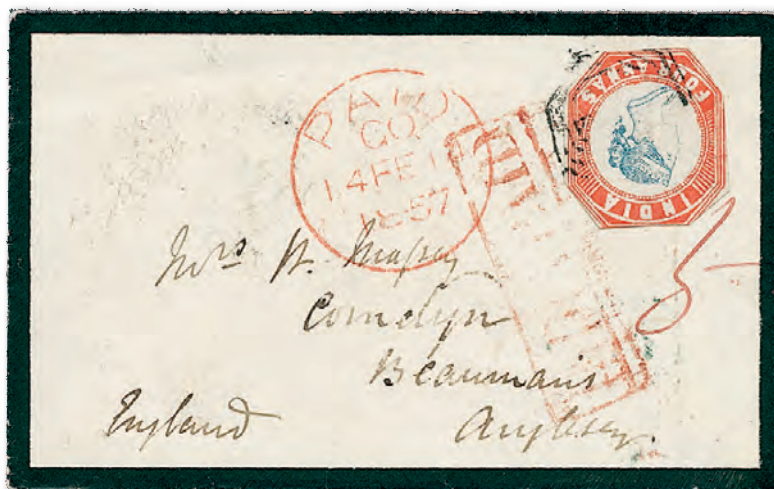 PAID
GO
14 FE 14
1857
FOUR ANNAS
INDIA
Mrs H. Massey
Cornelyn
Beaumaris
Anglesey.
England